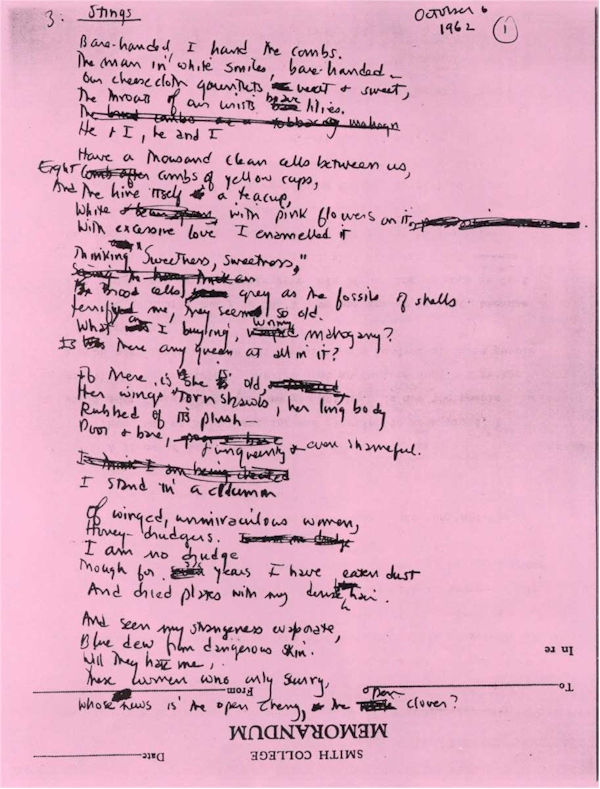 3. Stings
October 6
1962
1
Bare-handed, I hand the combs.
The man in white smiles, bare-handed –
Our cheesecloth gauntlets neat & sweet,
The throats of our wrists brave lilies.
He + I, he and I
Have a thousand clean cells between us,
Eight combs of yellow cups,
And the hive itself a teacup,
White with pink flowers on it,
With excessive love I enamelled it
Thinking "Sweetness, sweetness,"
Brood cells, grey as the fossils of shells
Terrify me, they seem so old.
What am I buying, wormy mahogany?
Is there any queen at all in it?
If there is, she is old,
Her wings torn shawls, her long body
Rubbed of its plush –
Poor & bare, & unqueenly & even shameful.
I think I am being cheated
I stand in a column
Of winged, unmiraculous women,
Honey-drudgers.
I am no drudge
Though for years I have eaten dust
And dried plates with my dense hair.
And seen my strangeness evaporate,
Blue dew from dangerous skin.
Will they hate me,
These women who only scurry,
Whose news is the open cherry, the open clover?
In re
To
From
MEMORANDUM
SMITH COLLEGE
Date